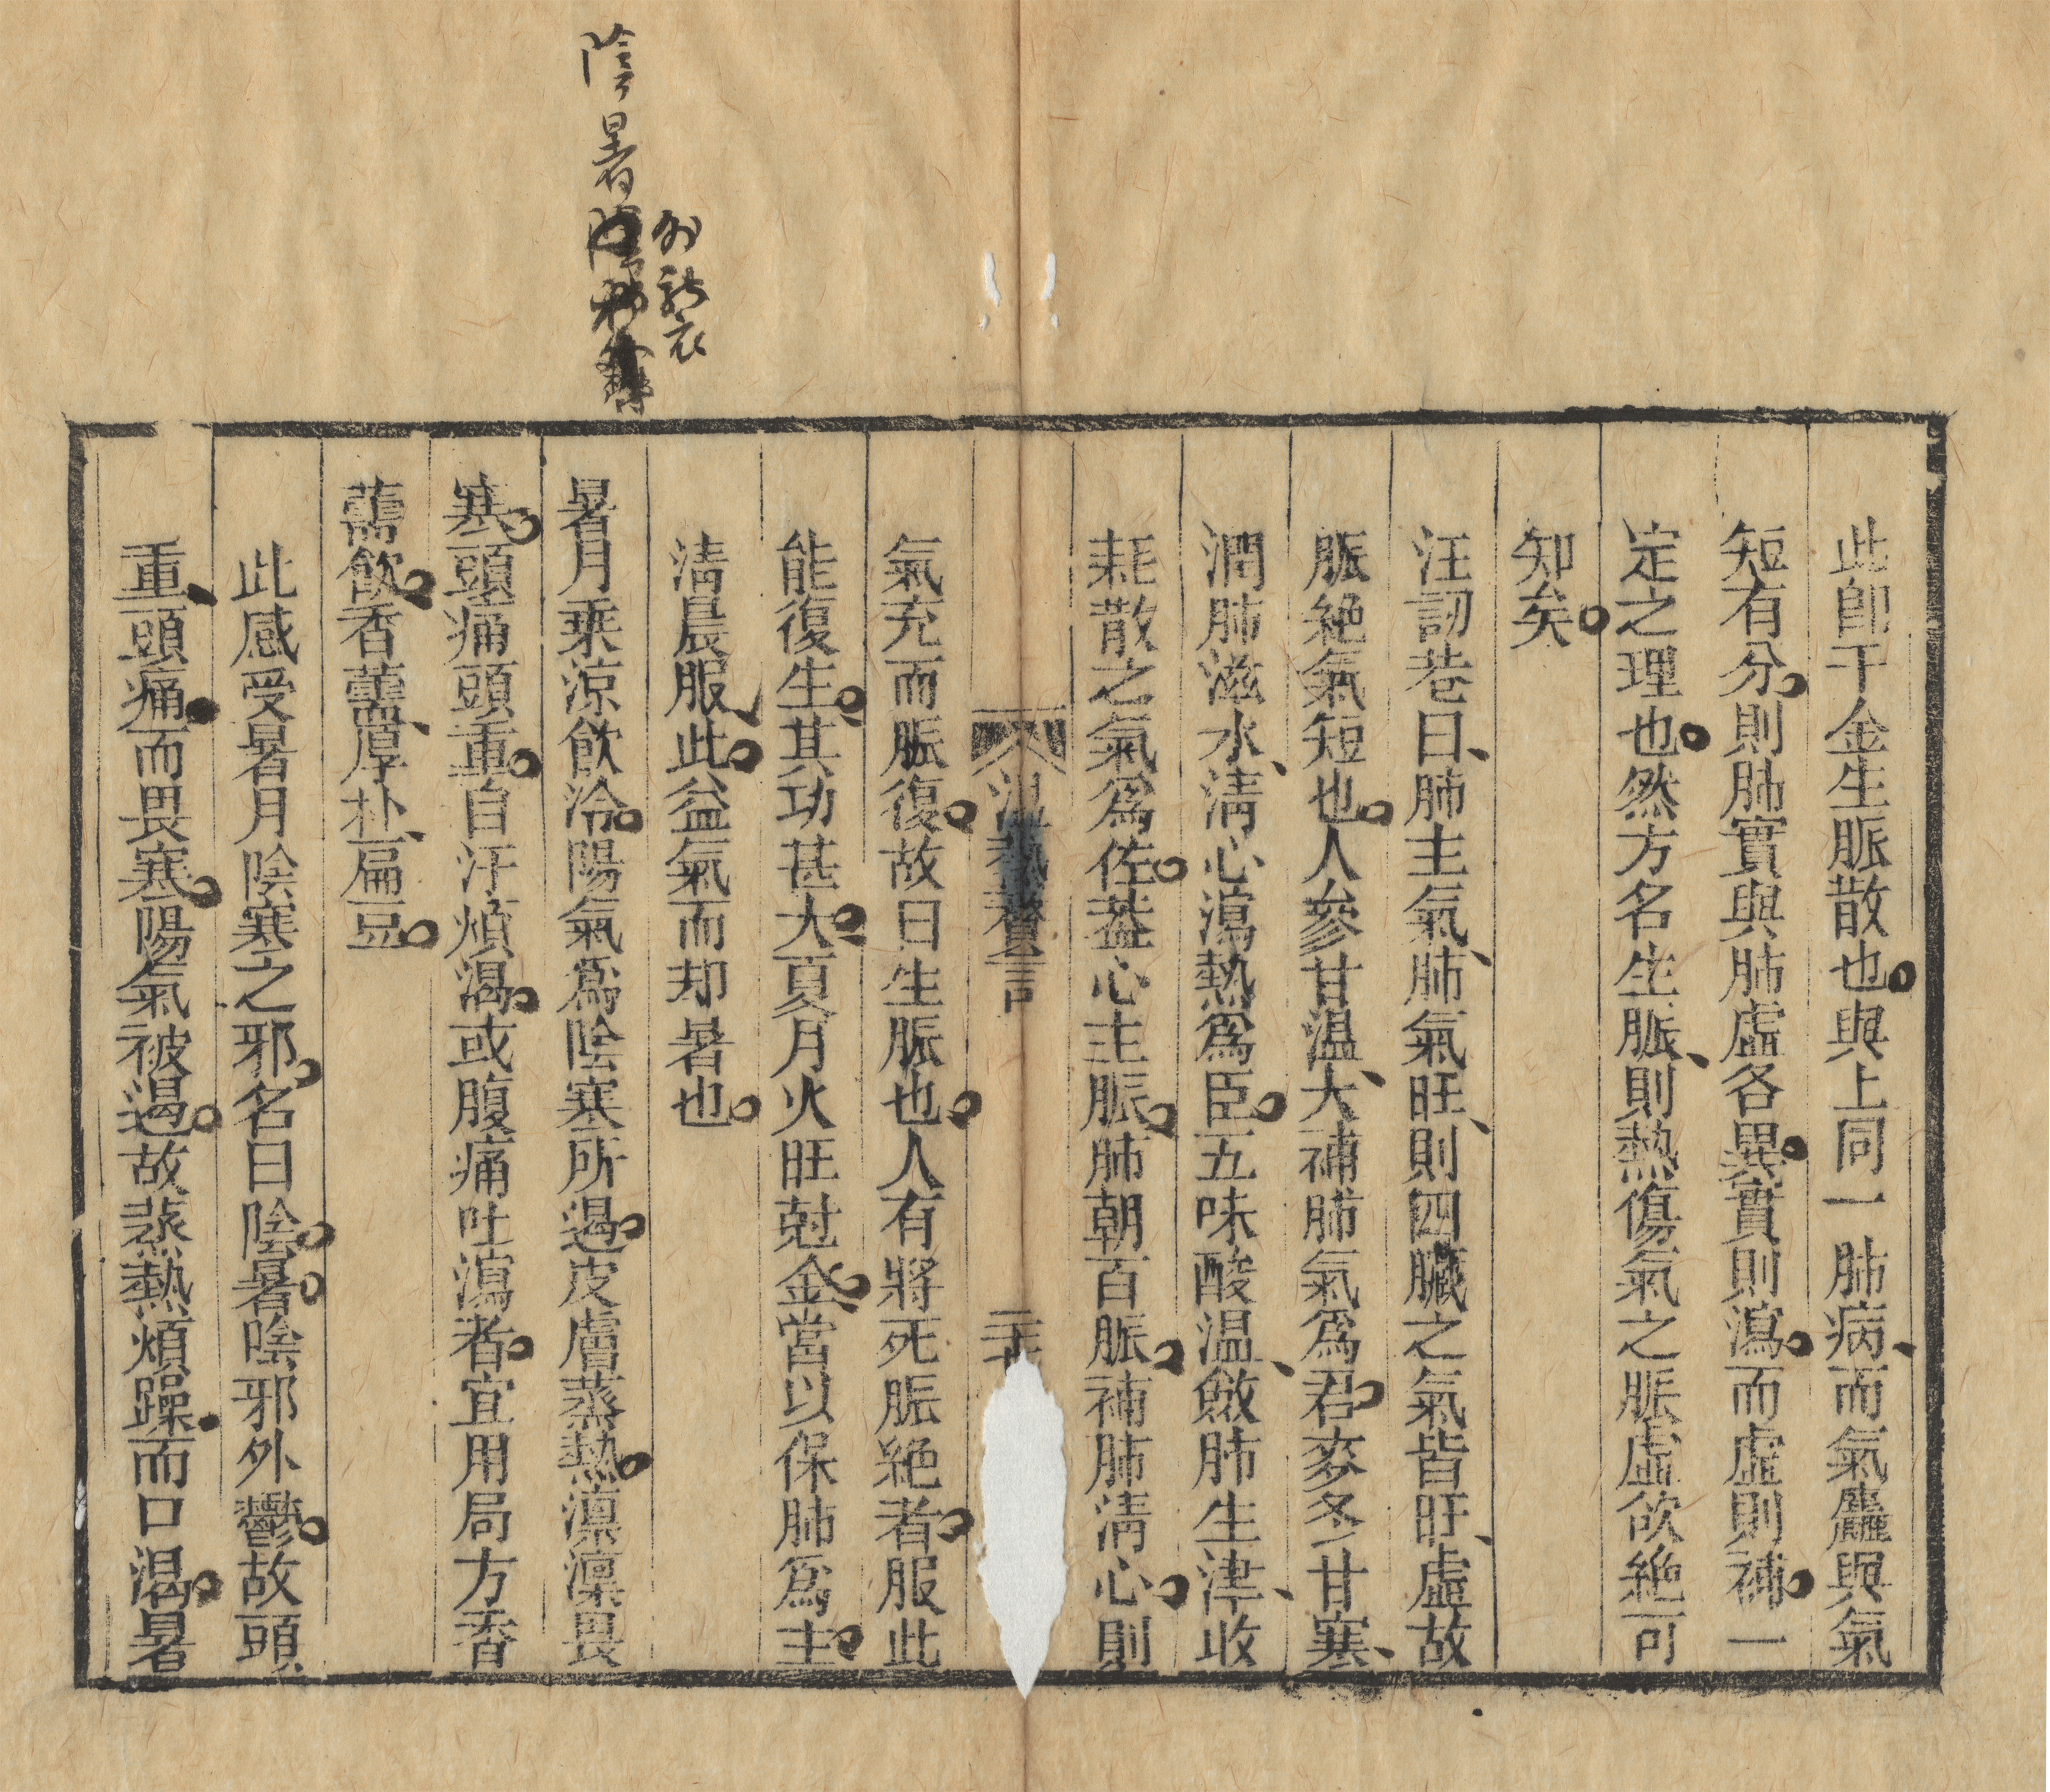 此卽千金生脈散也與上同一肺病而氣麤與氣
短有分則肺實與肺虛各異實則瀉而虛則補一
定之理也然方名生脈則熱傷氣之脈虛欲絶可
知矣
汪訒菴曰肺主氣肺氣旺則四臟之氣皆旺虛故
脈絶氣短也人參甘温大補肺氣爲君麥冬甘寒
潤肺滋水淸心瀉熱爲臣五味酸温斂肺生津收
耗散之氣爲佐葢心主脈肺朝百脈補肺淸心則
濕熱贅言
氣充而脈復故曰生脈也人有將死脈絶者服此
能復生其功甚大夏月火旺尅金當以保肺爲主
淸晨服此益氣而却暑也
暑月乘涼飮冷陽氣爲陰寒所遏皮膚蒸熱凛凛畏
寒頭痛頭重自汗煩渴或腹痛吐瀉者宜用局方香
薷飮香薷厚朴扁豆
此感受暑月陰寒之邪名曰陰暑陰邪外鬱故頭
重頭痛而畏寒陽氣被遏故蒸熱煩躁而口渴暑
陰暑